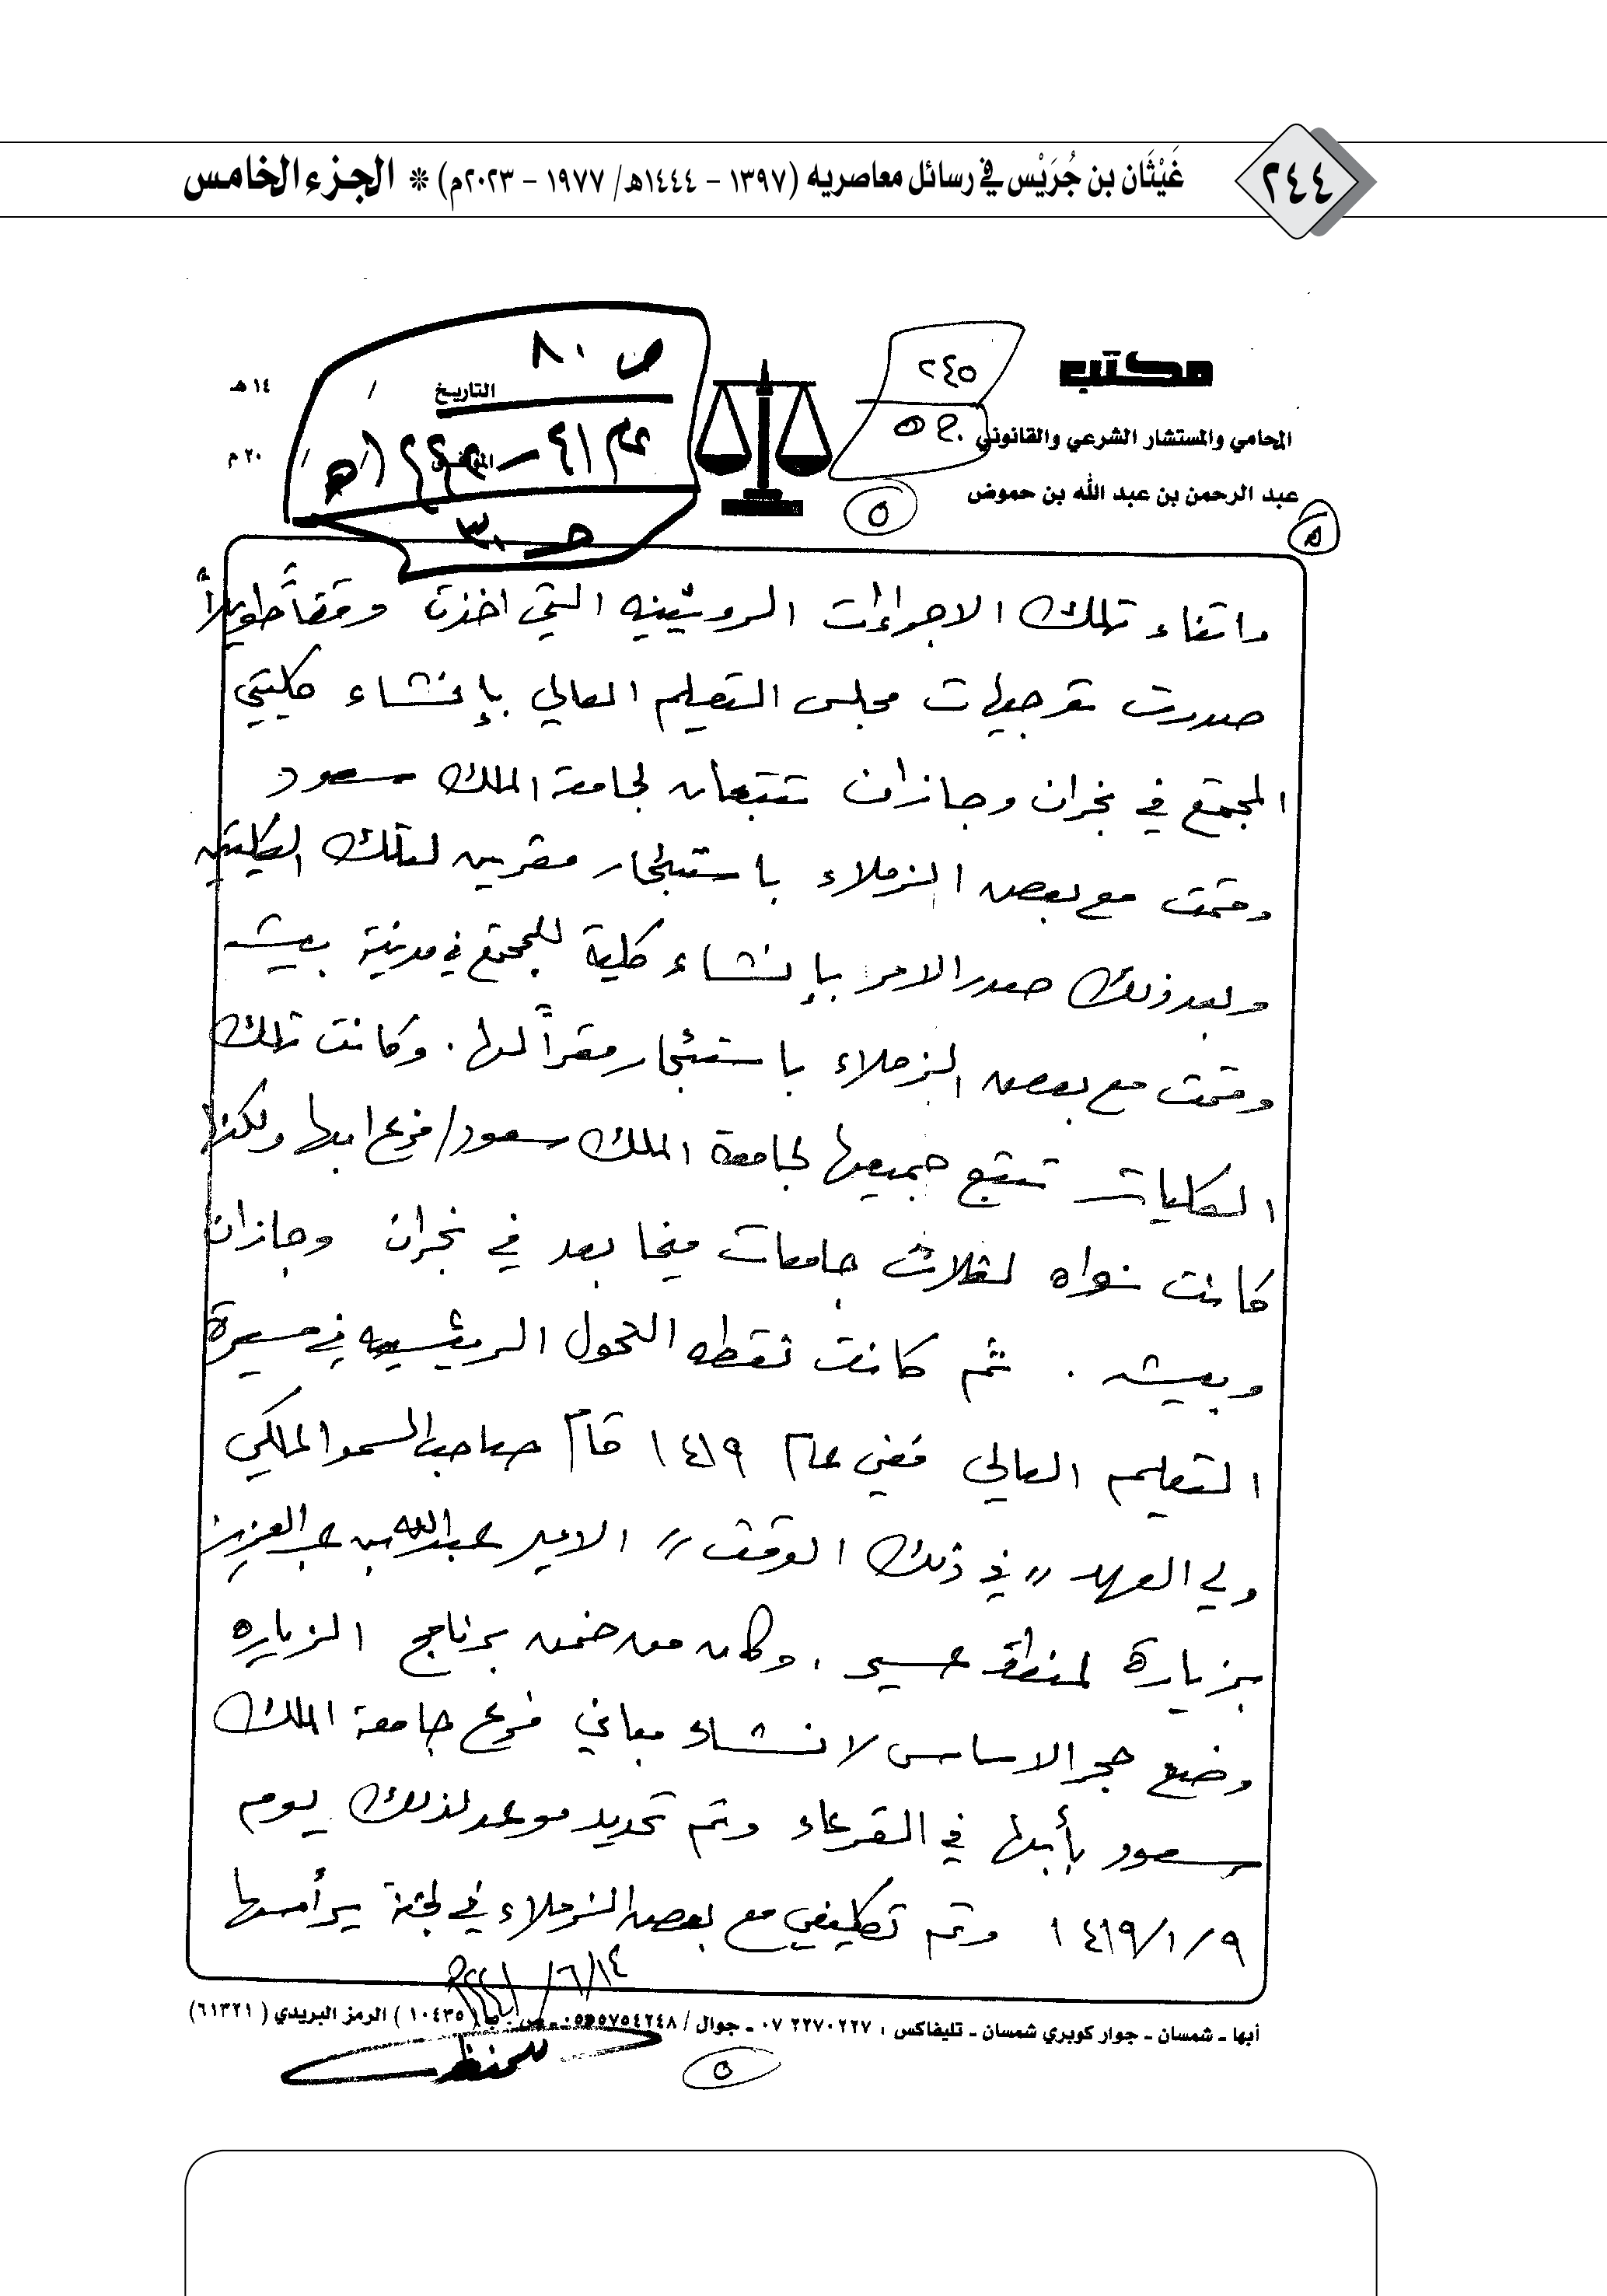 ٢٤٤
غَيْثَان بن جُرَيْس في رسائل معاصريه (١٣٩٧ - ١٤٤٤هـ/ ١٩٧٧ - ٢٠٢٣م) * الجزء الخامس
مكتب
المحامي والمستشار الشرعي والقانوني
عبد الرحمن بن عبد الله بن حموض
٢٤٥
٥
٥
التاريخ / ١٤ هـ
الموافق / / ٢٠ م
ص ٨٠
عام ٤١ -
حـ ٣٠
واثناء تلك الاجراءات الروتينيه التي اخذت وقتاً طويلاً
صدرت توجيهات مجلس التعليم العالي بإنشاء كليتي
المجتمع في نجران وجازان تتبعان لجامعة الملك سعود
وقمت مع بعض الزملاء باستئجار مقرين لتلك الكليتين
وبعد ذلك صدر الامر بإنشاء كلية للمجتمع في مدينة بيشه
وقمت مع بعض الزملاء باستئجار مقراً لها . وكانت تلك
الكليات تتبع جميعها لجامعة الملك سعود/فرع ابها ولكنها
كانت نواه لثلاث جامعات فيما بعد في نجران وجازان
وبيشه . ثم كانت نقطه التحول الرئيسيه في مسيرة
التعليم العالي ففي عام ١٤١٩ قام صاحب السمو الملكي
ولي العهد // في ذلك الوقت // الامير عبدالله بن عبدالعزيز
بزيارة لمنطقة عسير ، وكان من ضمن برنامج الزياره
وضع حجر الاساس لانشاء مباني فرع جامعة الملك
سعود بأبها في القرعاء وتم تحديد موعد لذلك يوم
١٤١٩/١/٩ وتم تكليفي مع بعض الزملاء في لجنة يرأسها
أبها ـ شمسان ـ جوار كوبري شمسان ـ تليفاكس : ٢٢٧٠٢٢٧ ٠٧ ـ جوال / ٠٥٥٥٧٥٤٢٤٨ ـ ص . ب ( ١٠٤٣٥ ) الرمز البريدي ( ٦١٣٢١ )
٥